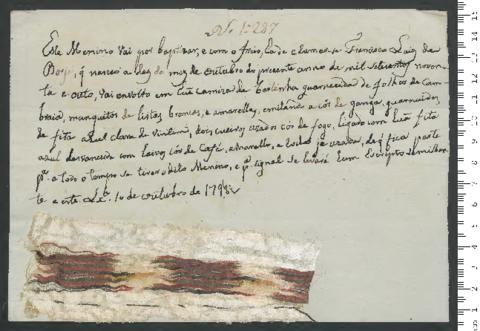 Nº 1:287
Este Menino Vai por baptizar, e com o frio, ha de chamarse Francisco Luiz de
Borja, q naceu a dez do mez de outubro do prezente anno de mil setecentos noven-
ta e outo, Vai envolto em huã camiza de guarnecida de folhos de Cam-
braia, manguitos de listas brancas, e amarellas, cor de ganga, guarnecidos
de fita azul clara de Vintem, dois cueiros uzados côr de fogo, ligado com huã fita
azul desvanecida com laivos côr de Café, e amarello, e toda já uzada, de q fica parte
pª a todo o tempo se tirar o dito Menino, e pª signal se levará hum Escripto semilhan-
te a este. 10 de outubro de 1798